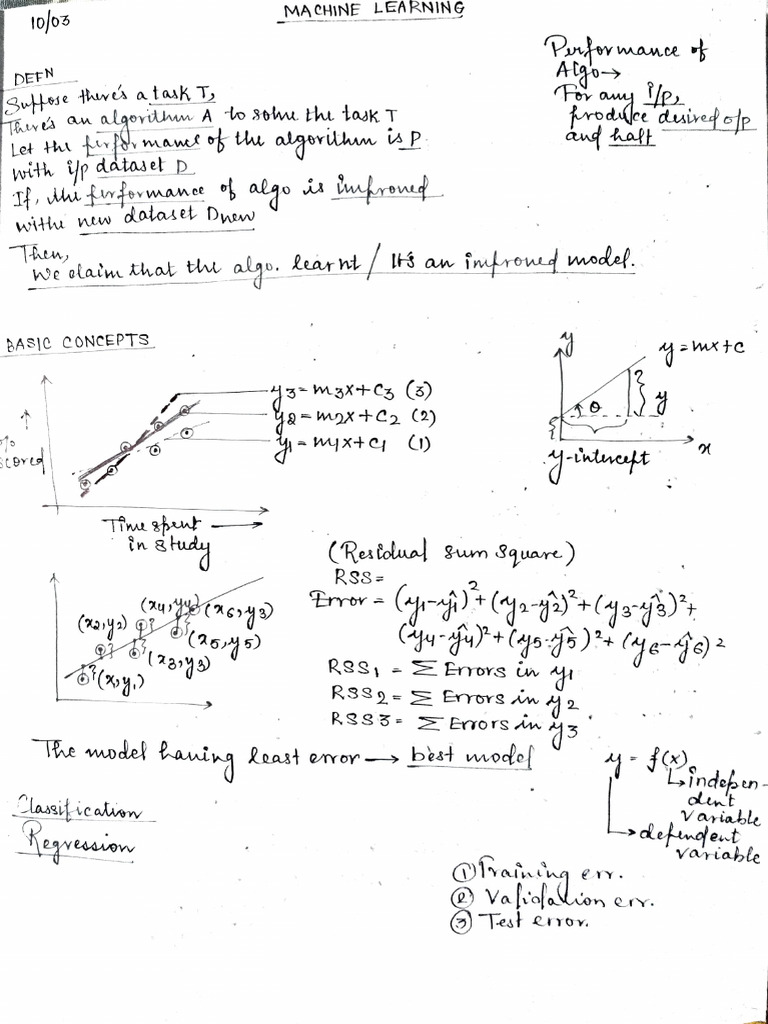 10/03
MACHINE LEARNING
Performance of
Algo→
For any i/p,
produce desired o/p
and halt
DEFN
Suppose there's a task T,
There's an algorithm A to solve the task T
Let the performance of the algorithm is P
with i/p dataset D
If, the performance of algo is improved
withe new dataset Dnew
Then,
We claim that the algo. learnt / It's an improved model.
BASIC CONCEPTS
y
y = mx+c
y3 = m3x + c3 (3)
y2 = m2x + c2 (2)
y1 = m1x + c1 (1)
θ
y
x
y-intercept
% scored
Time spent
in study
(Residual sum square)
RSS =
Error = (y1-ŷ1)² + (y2-ŷ2)² + (y3-ŷ3)² +
(y4-ŷ4)² + (y5-ŷ5)² + (y6-ŷ6)²
(x4,y4)
(x6,y3)
(x2,y2)
(x5,y5)
(x3,y3)
(x,y1)
RSS1 = Σ Errors in y1
RSS2 = Σ Errors in y2
RSS3 = Σ Errors in y3
The model having least error → best model
y = f(x)
indepen-
dent
variable
dependent
variable
Classification
Regression
① Training err.
② Validation err.
③ Test error.